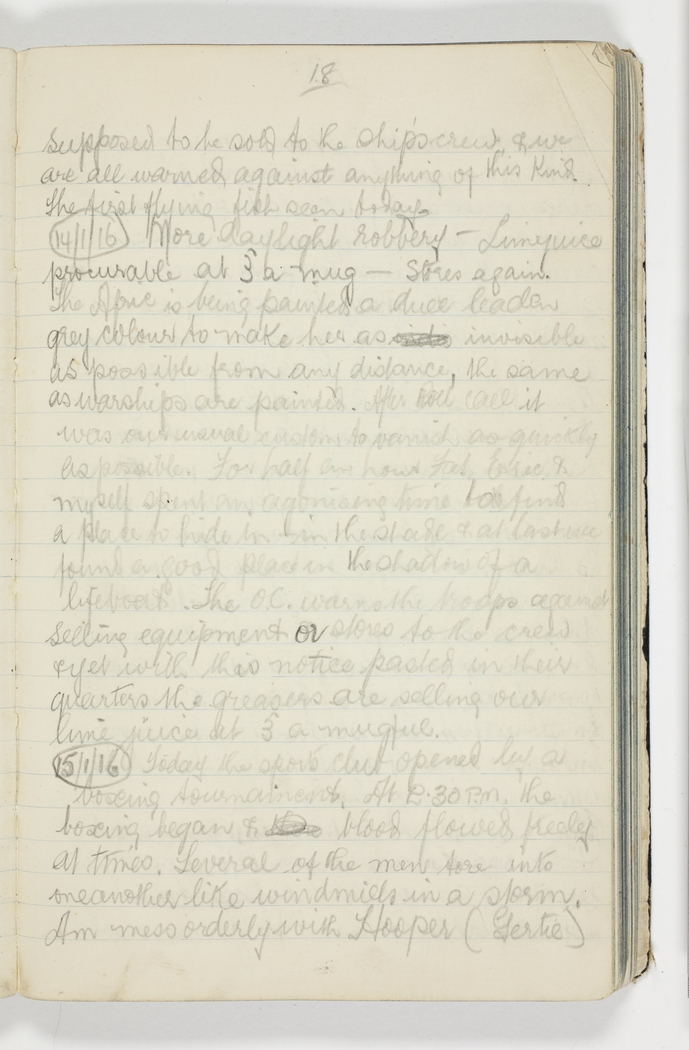 18
supposed to be sold to the ship's crew, & we
are all warned against anything of this kind.
The first flying fish seen today.
14/1/16 More daylight robbery – Limejuice
procurable at 3d a mug – Stores again.
The Afric is being painted a dull leaden
grey colour to make her as invisible
as possible from any distance, the same
as warships are painted. After roll call it
was our usual custom to vanish as quickly
as possible. For half an hour Fat, Eric, &
myself spent an agonising time to find
a place to hide in – in the shade & at last we
found a good place in the shadow of a
lifeboat. The O.C. warns the troops against
selling equipment or stores to the crew
& yet with this notice pasted in their
quarters the greasers are selling our
lime juice at 3d a mugful.
15/1/16 Today the sports club opened by a
boxing tournament. At 2.30 P.m. the
boxing began & blood flowed freely
at times. Several of the men tore into
one another like windmills in a storm.
Am mess orderly with Hooper (Gertie)